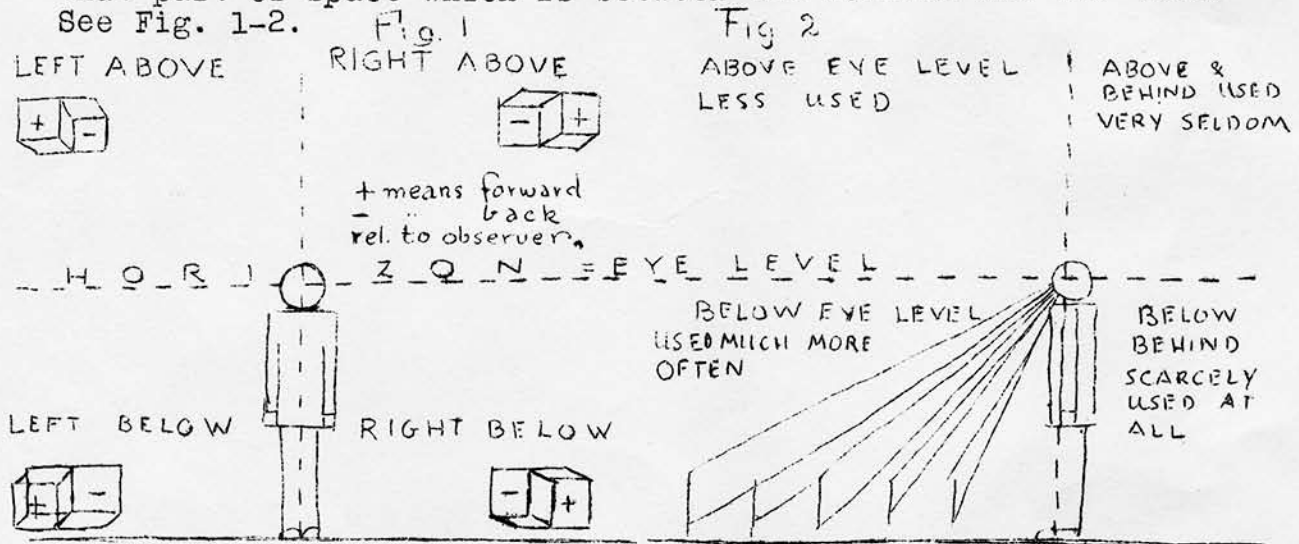 part of space which is
See Fig. 1-2.
Fig. 1
Fig 2
LEFT ABOVE
RIGHT ABOVE
+ -
- +
+ means forward
- " back
rel. to observer.
ABOVE EYE LEVEL
LESS USED
ABOVE &
BEHIND USED
VERY SELDOM
HORIZON = EYE LEVEL
BELOW EYE LEVEL
USED MUCH MORE
OFTEN
BELOW
BEHIND
SCARCELY
USED AT
ALL
LEFT BELOW
RIGHT BELOW
+ -
- +